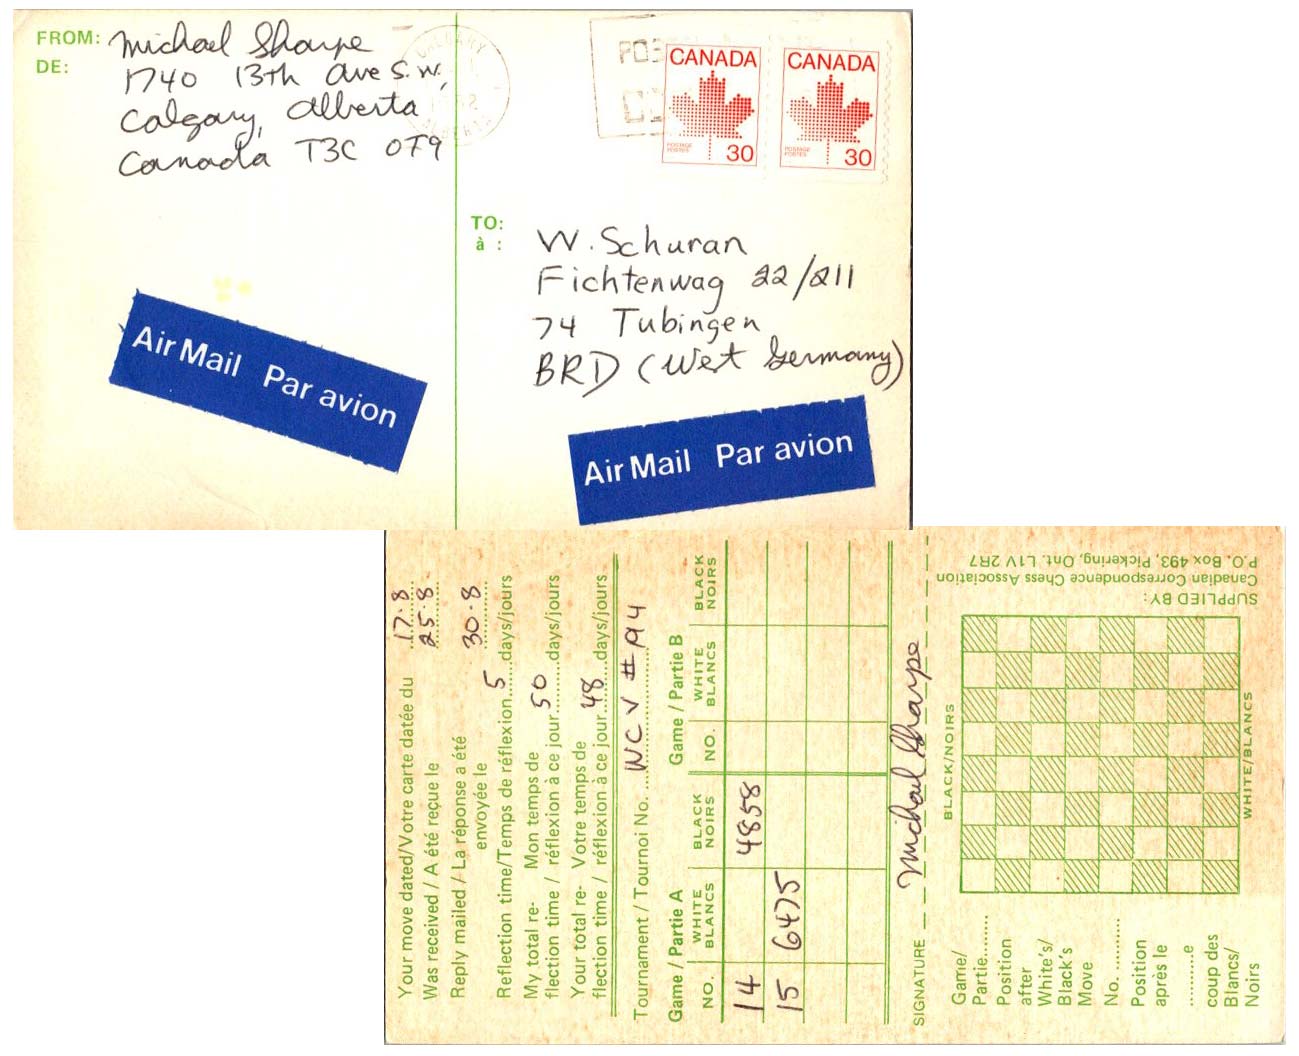 FROM: Michael Sharpe
DE: 1740 13th Ave S.W.,
Calgary, Alberta
Canada T3C 0T9
CALGARY
ALBERTA
CANADA
POSTAGE
POSTES
30
CANADA
POSTAGE
POSTES
30
TO:
à :
W. Schuran
Fichtenwag 22/211
74 Tubingen
BRD (West Germany)
Air Mail Par avion
Air Mail Par avion
Your move dated/Votre carte datée du 17.8
Was received / A été reçue le 25.8
Reply mailed / La réponse a été
envoyée le 30.8
Reflection time/Temps de réflexion 5 days/jours
My total re- Mon temps de
flection time / réflexion à ce jour 50 days/jours
Your total re- Votre temps de
flection time / réflexion à ce jour 48 days/jours
Tournament / Tournoi No. WCV #A4
Game / Partie A Game / Partie B
NO. WHITE BLANCS BLACK NOIRS NO. WHITE BLANCS BLACK NOIRS
14 4858
15 6475
SIGNATURE Michael Sharpe
Game/
Partie
Position
after
White's/
Black's
Move
No.
Position
après le
e
coup des
Blancs/
Noirs
BLACK/NOIRS
WHITE/BLANCS
SUPPLIED BY:
Canadian Correspondence Chess Association
P.O. Box 493, Pickering, Ont. L1V 2R7